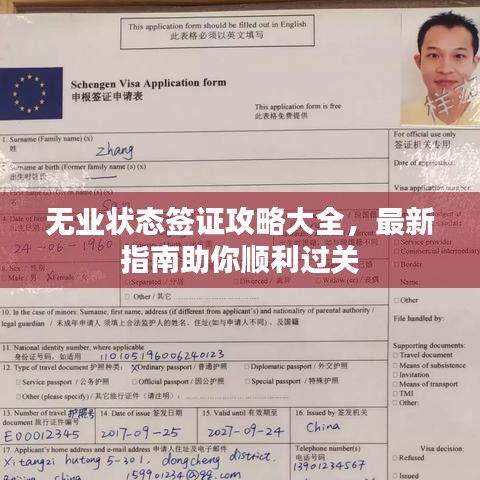 This application form should be filled out in English
此表格必须以英文填写
Schengen Visa Application form
申根签证申请表
This application form is free
此表格免费提供
样
1. Surname (Family name) (x)
Zhang
For official use only
签证机关专用
Surname at birth (Former family name) (x)
出生时姓氏
Date of application:
无业状态签证攻略大全，最新
指南助你顺利过关
24-06-1960
Male / 男
Female /
Other / 其它
10. In the case of minors: Surname, first name, address (if different from applicant's) and nationality of parental authority /
legal guardian / 未成年申请人 须填上合法监护人的姓名、住址(如与申请人不同)、及国籍
File handled by:
11. National identity number, where applicable
身份证号码，如适用
110105196006240123
12. Type of travel document 护照种类:
x Ordinary passport / 普通护照
Diplomatic passport / 外交护照
Service passport / 公务护照
Official passport / 因公护照
Special passport / 特殊护照
Other (please specify) / 其它旅行证件（请注明）:
Supporting documents:
Travel document
Means of subsistence
Invitation
Means of transport
TMI
Other:
13. Number of travel
护照号
14. Date of issue 签发日期
15. Valid until 有效期至
16. Issued by 签发机关
E00012345
2017-09-25
2027-09-24
China
17. Applicant's home address and e-mail address
申请人住址及电子邮件
Telephone number(s)
电话号码
Visa decision:
Xitangzi hutong 5-301, dongcheng district,
13901234567
Refused
Issued:
China